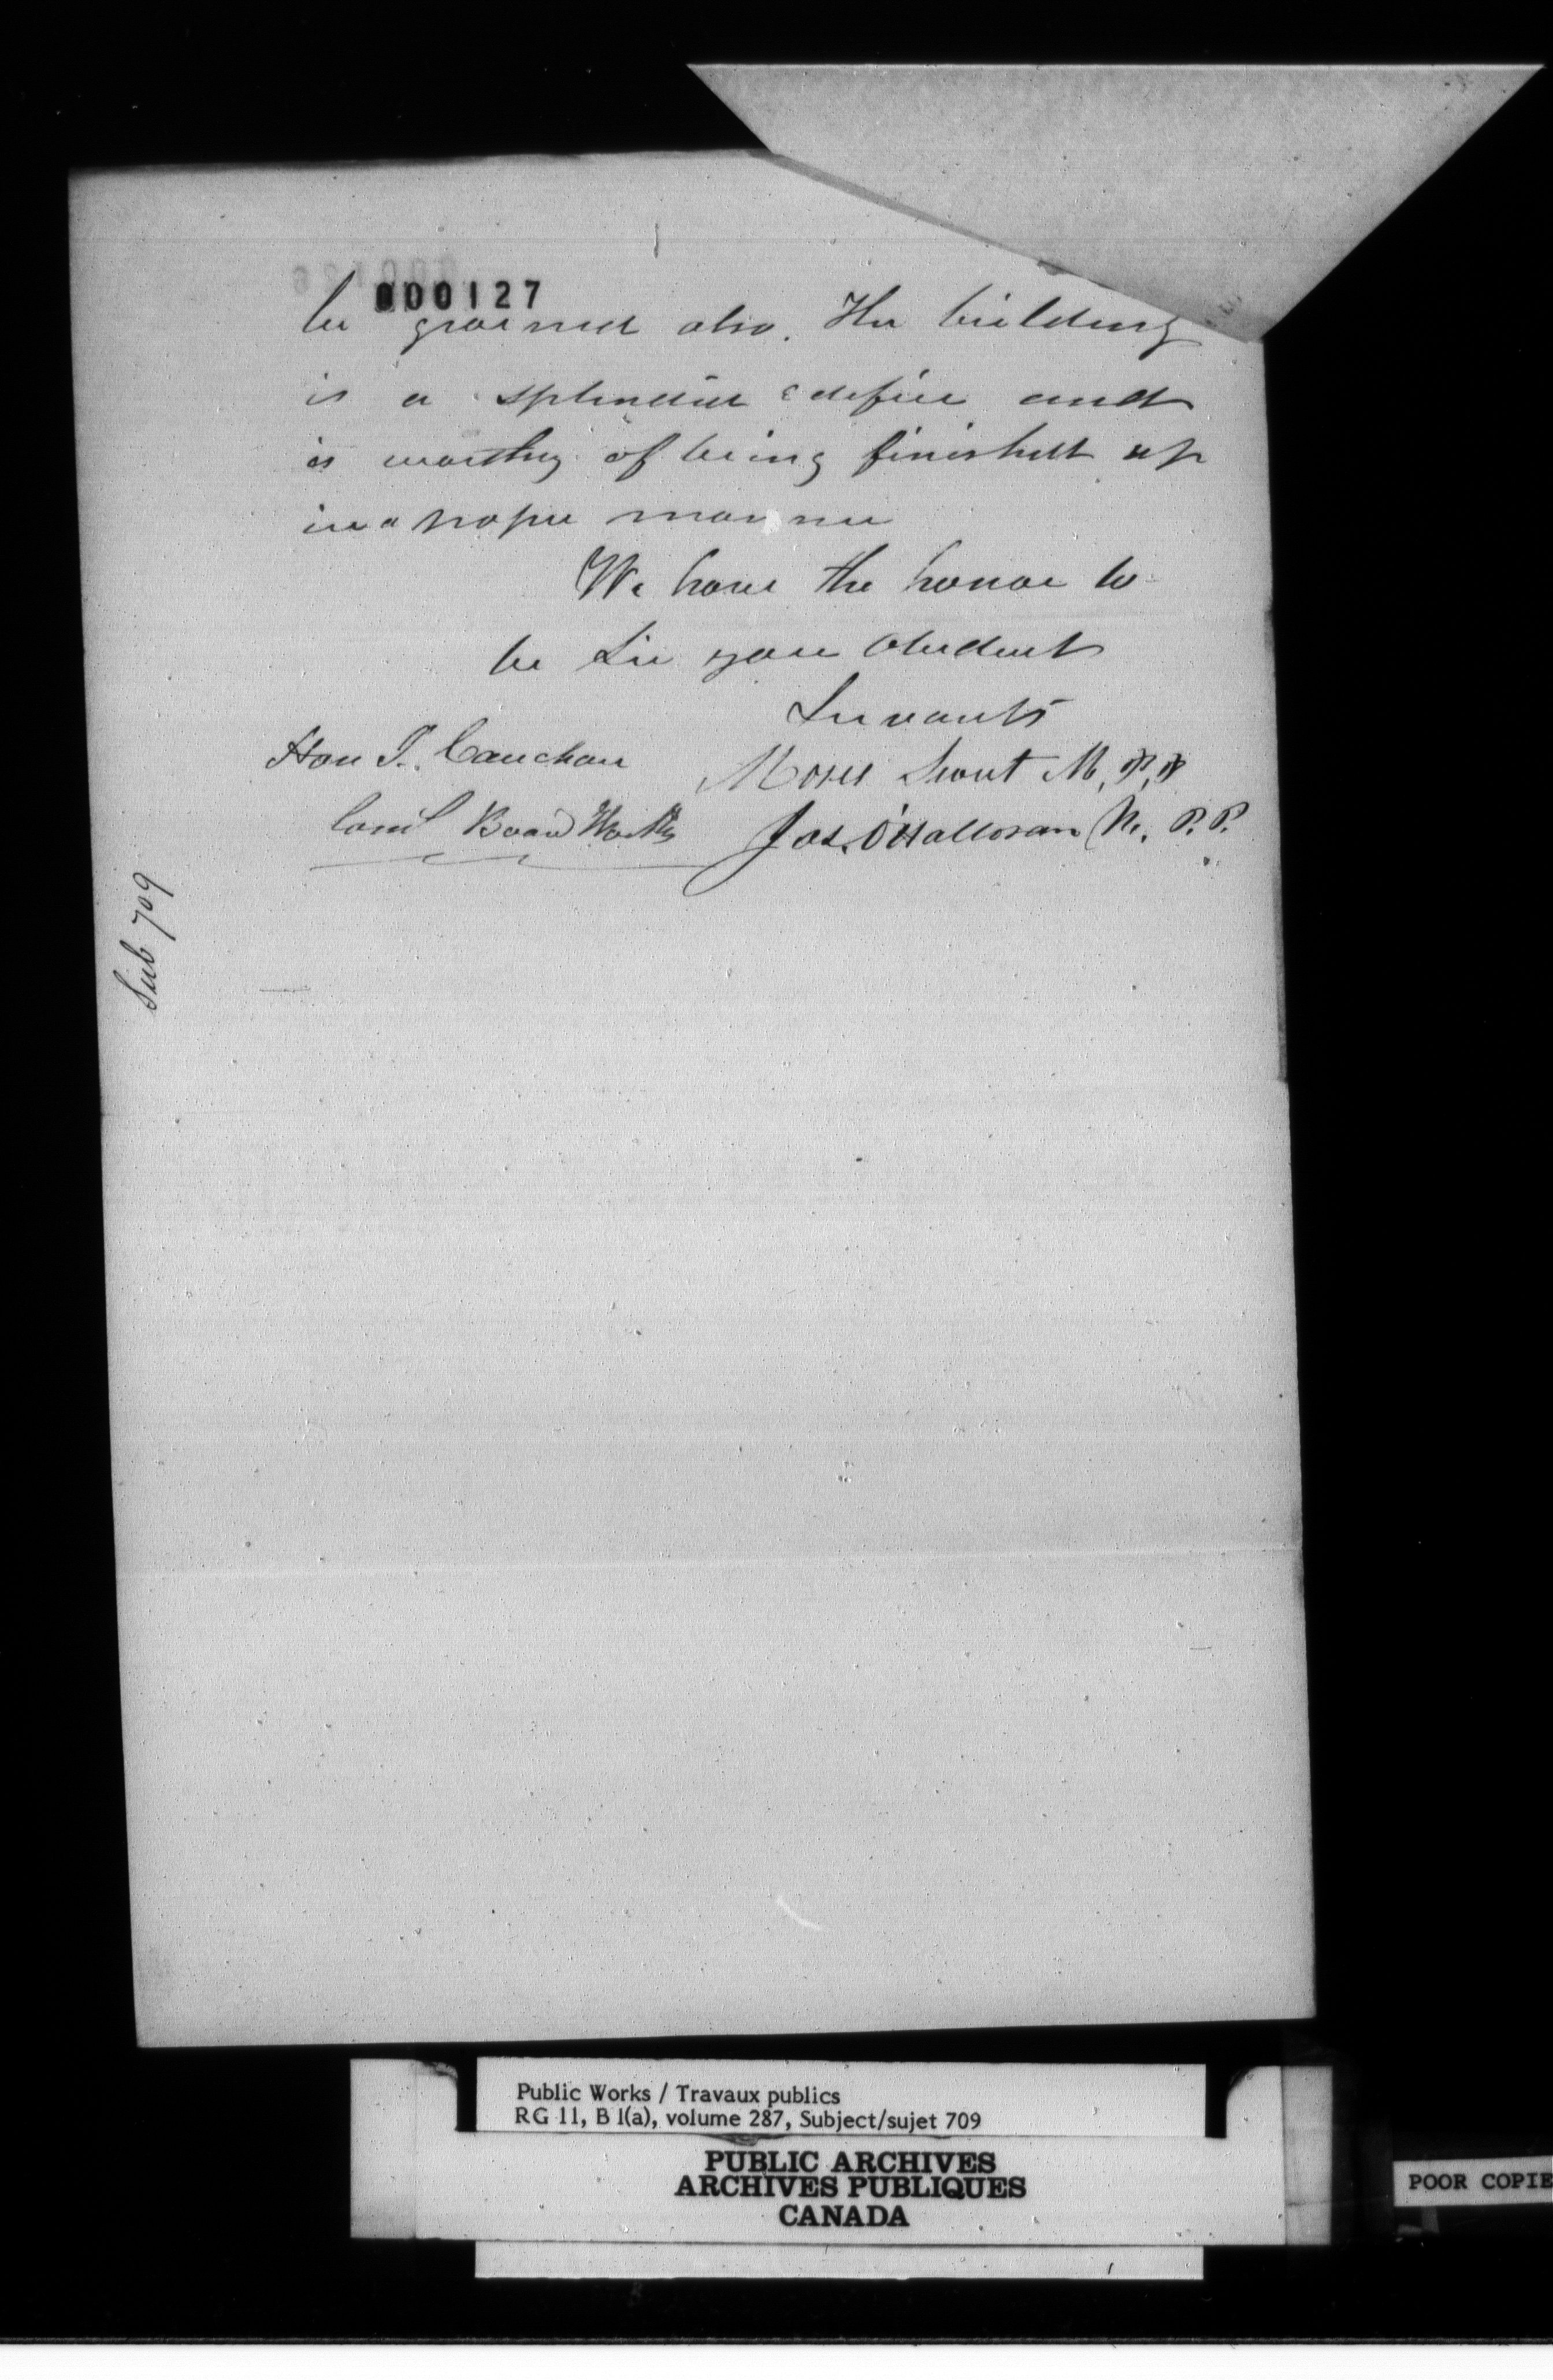 000127
be grained also. The building
is a splendid edifice and
is worthy of being finished up
in a proper manner
We have the honor to
be Sir your Obedient
Servants
Hon J. Cauchon
Moses Sweet M.P.P
Coml Board Works
Jos. O'Halloran M.P.P.
Sub 709
Public Works / Travaux publics
RG 11, B 1(a), volume 287, Subject/sujet 709
PUBLIC ARCHIVES
ARCHIVES PUBLIQUES
CANADA
POOR COPIE